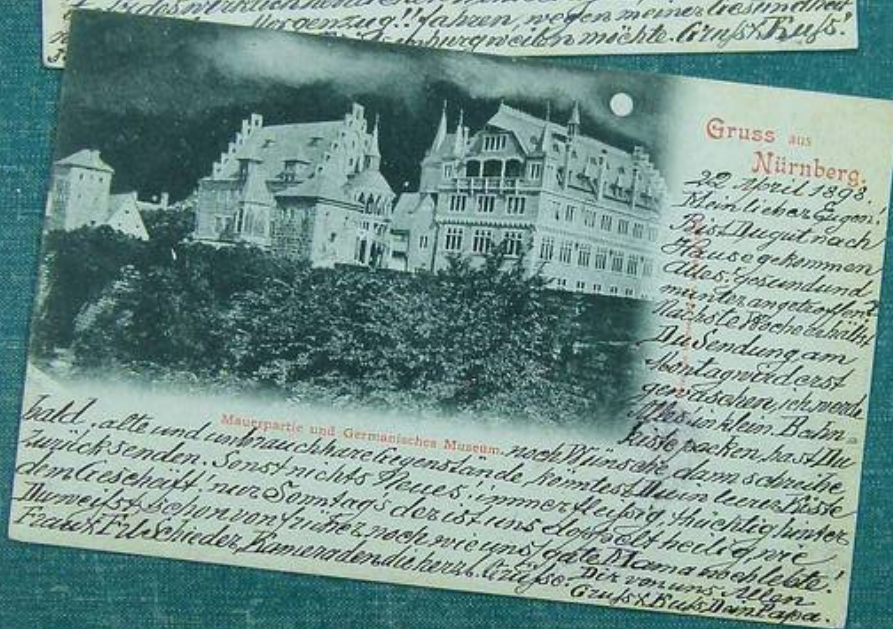 des wirklich
Morgenzug!! fahren, wegen meiner Gesundheit
weilen möchte. Gruß & Kuß!
Gruss aus
Nürnberg.
22 April 1898.
Mein lieber Eugen!
Bist Du gut nach
Hause gekommen
Alles gesund und
munter angetroffen?
Nächste Woche erhältst
Du Sendung am
Montag wird erst
gewaschen, ich werde
Alles in klein. Bahn-
kiste packen, hast Du
Mauerpartie und Germanisches Museum.
noch Wünsche dann schreibe
bald, alte und unbrauchbare Gegenstände komtest Du in leerer Kiste
zurücksenden. Sonst nichts Neues, immer fleißig, tüchtig hinter
dem Gescheift, nur Sonntag's der ist uns doppelt heilig wie
Du weißt schon von früher, noch wie uns gute Mama noch lebte!
Frau & Frl Schieder, Kameraden die herzl. Grüße. Dir von uns Allen
Gruß & Kuß Dein Papa.